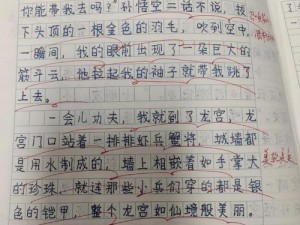 你能带我去吗？孙悟空二话不说，拔
下头顶的一根金色的羽毛，吹到空中
一瞬间，我的眼前出现了一朵巨大的
筋斗云，他拉起我的袖子就带我跳了
上去。
一会儿功夫，我就到了龙宫，龙
宫门口站着一排排虾兵蟹将，城墙都
是用水制成的，墙上相嵌着如手掌大
的珍珠，就连那些小兵们穿的都是银
色的铠甲，整个龙宫如仙境般美丽。